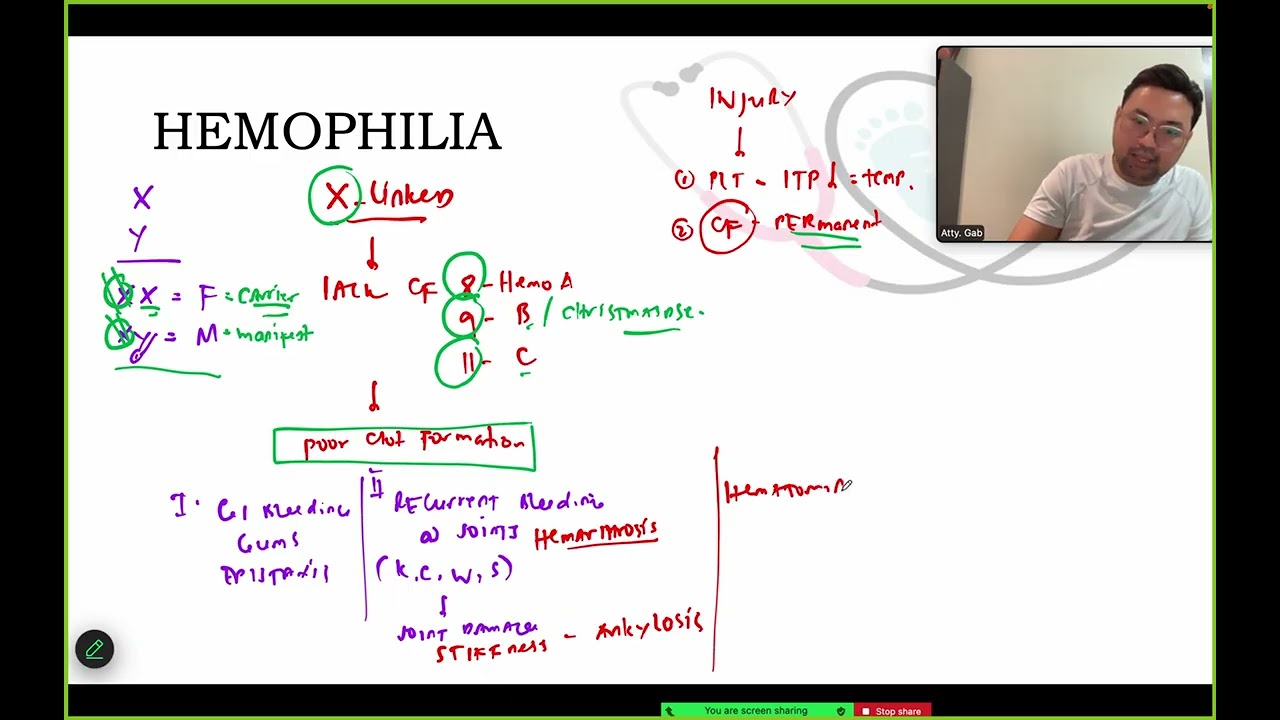 HEMOPHILIA
X
Y
XX = F = CARRIER
XY = M = manifest
X-Linked
LACK CF 8 - Hemo A
9 - B / CHRISTMAS DSE.
11 - C
poor Clot Formation
I. GI Bleeding
GUMS
EPISTAXIS
II RECURRENT Bleeding
@ JOINTS HEMARTHROSIS
(K, E, W, S)
JOINT DAMAGE
STIFFNESS - ANKYLOSIS
INJURY
① PLT - ITP ↓ = temp.
② CF - PERmanent
HEMATOMA
Atty. Gab
You are screen sharing
Stop share